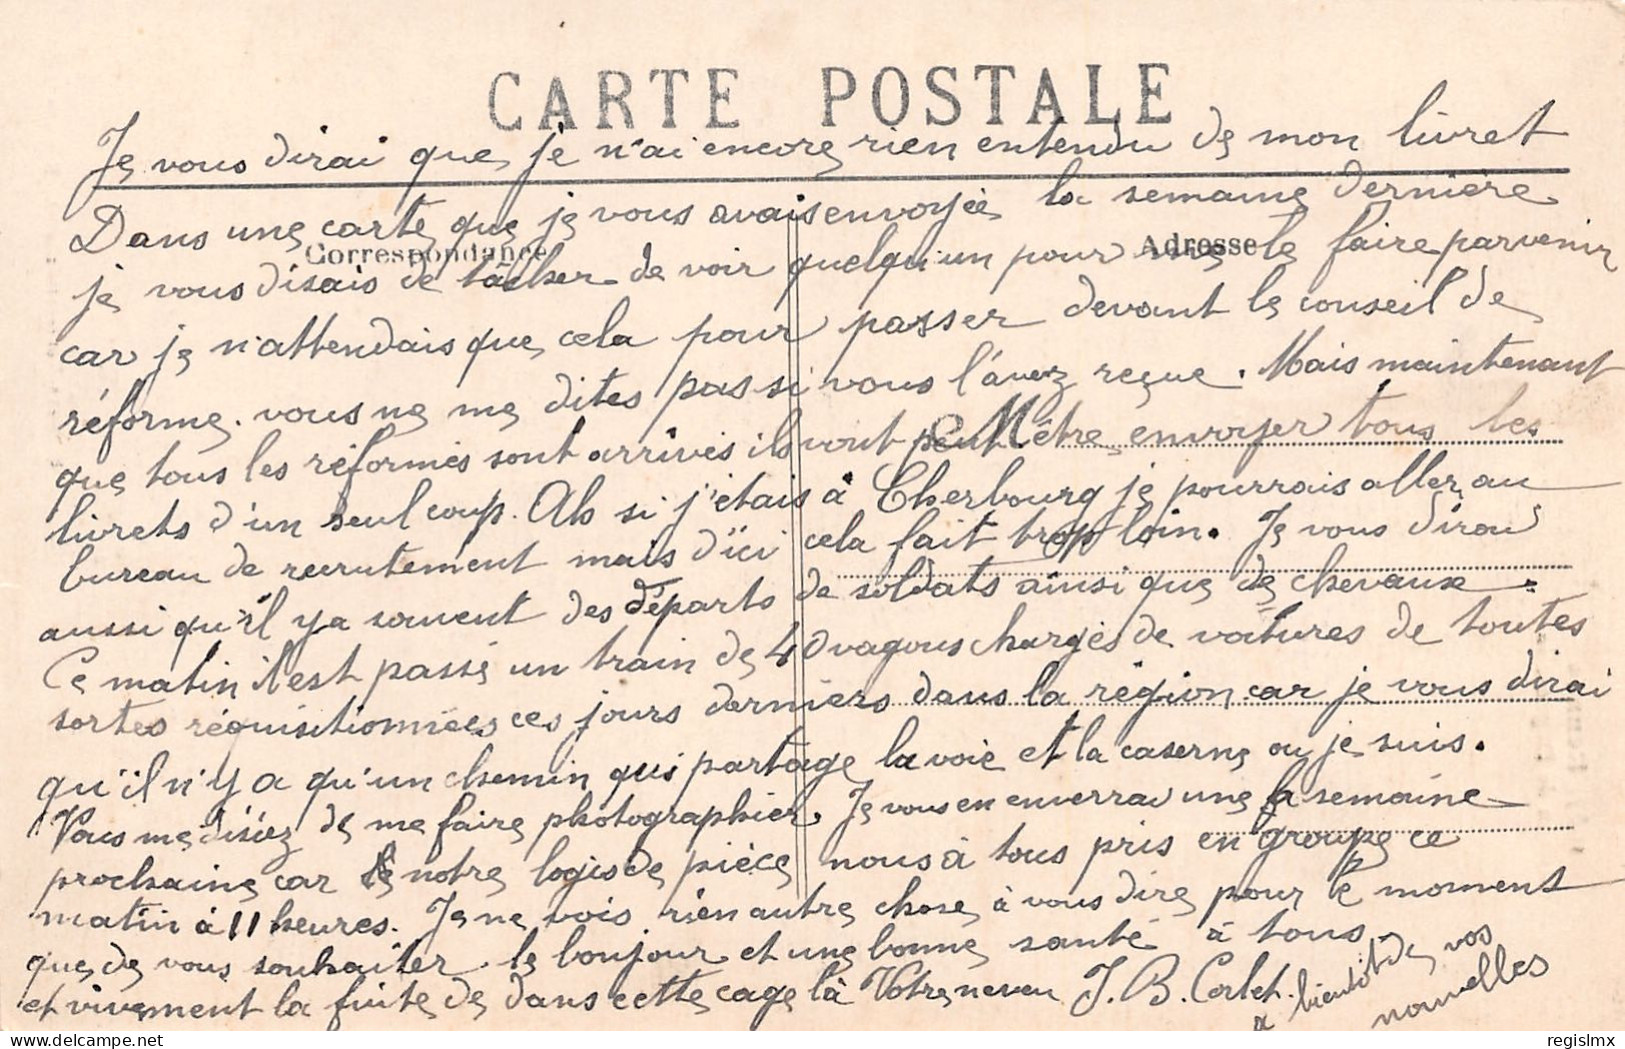 CARTE POSTALE
Je vous dirai que je n'ai encore rien entendu de mon livret
Dans une carte que je vous avais envoyée la semaine dernière
Correspondance
Adresse
je vous disais de tacher de voir quelqu'un pour le faire parvenir
car je n'attendais que cela pour passer devant le conseil de
réforme. vous ne me dites pas si vous l'avez reçue. Mais maintenant
M
que tous les réformés sont arrivés ils vont peut être envoyer tous les
livrets d'un seul coup. Ah si j'étais à Cherbourg je pourrais aller au
bureau de recrutement mais d'ici cela fait trop loin. Je vous dirai
aussi qu'il y a souvent des départs de soldats ainsi que de chevaux.
Ce matin il est passé un train de 40 vagons chargés de voitures de toutes
sortes réquisitionnées ces jours derniers dans la région car je vous dirai
qu'il n'y a qu'un chemin qui partage la voie et la caserne ou je suis.
Vous me disiez de me faire photographier. Je vous en enverrai une la semaine
prochaine car notre logis de pièce nous à tous pris en groupe ce
matin à 11 heures. Je ne vois rien autre chose à vous dire pour le moment
que de vous souhaiter le bonjour et une bonne santé à tous
et vivement la fuite de dans cette cage là Votre neveu J. B. Corlet.
à bientôt de vos
nouvelles
regislmx